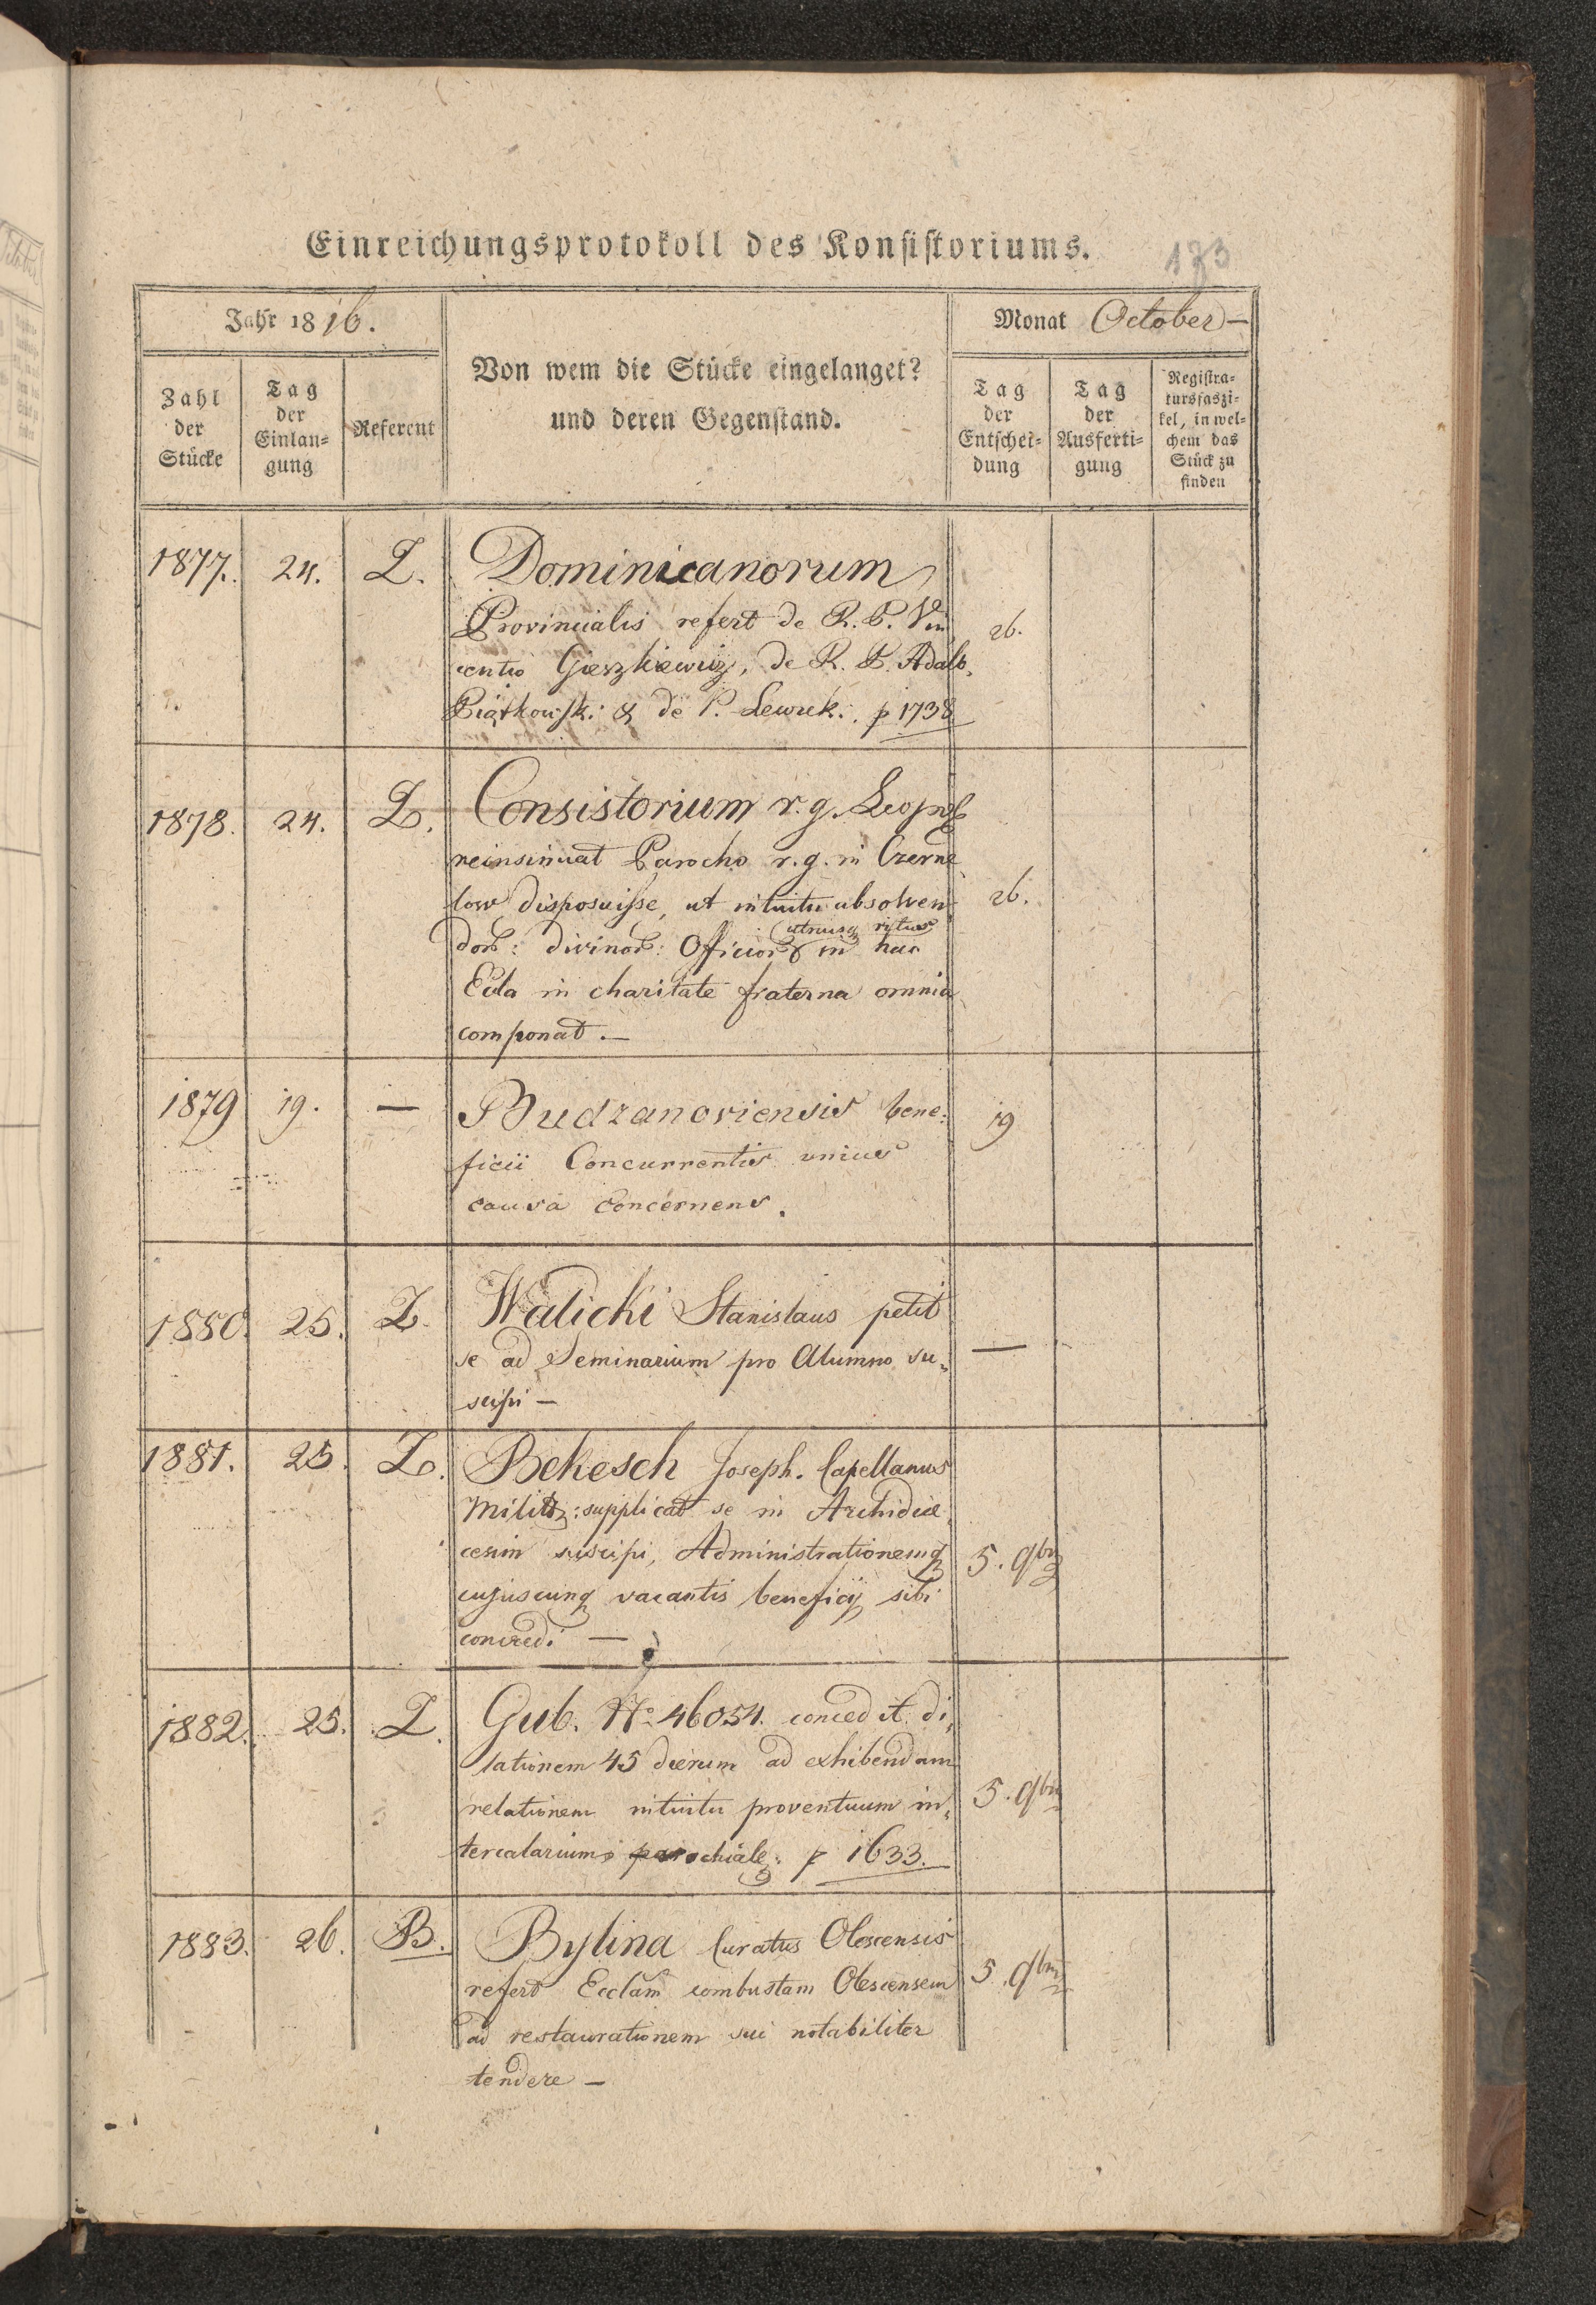 Einreichungsprotokoll des Konsistoriums.
173
Jahr 1816.
Von wem die Stücke eingelanget?
und deren Gegenstand.
Monat October —
Zahl
der
Stücke
Tag
der
Einlan-
gung
Referent
Tag
der
Entschei-
dung
Tag
der
Ausferti-
gung
Registra-
tursfaszi-
kel, in wel-
chem das
Stück zu
finden
1877. 24. L. Dominicanorum
Provincialis refert de R. P. Vin 26.
centio Gieszkiewicz, de R. P. Adalb.
Piątkowski & de P. Lewick. p 1738
1878. 24. L. Consistorium r. g. Leopol
reinsinuat Parocho r. g. in Czerne
low disposuisse, ut intuitu absolven 26.
utriusq ritus
dor: divinor: Officior in hac
Ecla in charitate fraterna omnia
componat. —
1879 19. — Budzanoviensis bene- 19
ficii Concurrentis unius
causa concernens.
1880. 25. L. Walicki Stanislaus petit
se ad Seminarium pro Alumno su- —
scipi —
1881. 25. L. Bekesch Joseph. Capellanus
Milit: supplicat se in Archidiæ
cesim suscipi, Administrationemq 5. 9br
cujuscunq vacantis beneficij sibi
concredi —
1882. 25. L. Gub. No 46054. concedit di-
lationem 45 dierum ad exhibendam
relationem intuitu proventuum in- 5. 9br
tercalarium parochiale: p 1633.
1883. 26. B. Bylina Curatus Olescensis
refert Ecclam combustam Olescensem 5. 9br
ad restaurationem sui notabiliter
tendere —